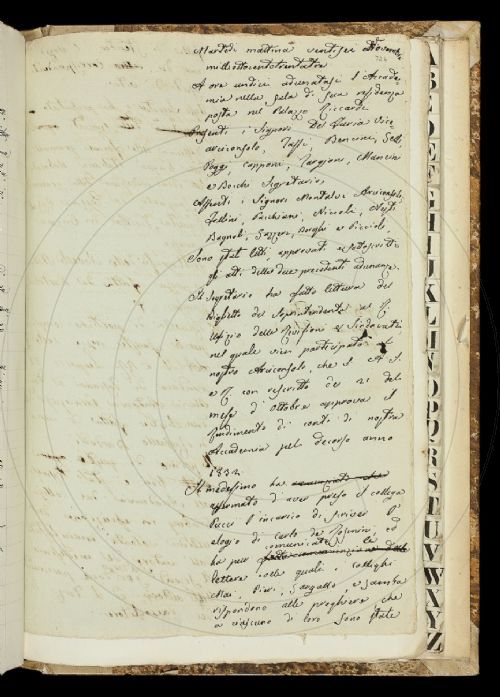 Martedì mattina ventisei Novembre
milleottocentotrentatre
A ore undici adunatasi l'Accade-
mia nella Sala di sua residenza
posta nel Palazzo Riccardi
Presenti i Signori Del Furia Vice
arciconsolo, Tassi, Bencini, Selli,
Poggi, Capponi, Targioni, Mancini
e Becchi Segretario
Assenti i Signori Montalvi Arciconsolo,
Pacchiani, Niccolini,
Bagnoli, Gazzeri, Borghi e Piccioli,
Sono stati letti, approvati e sottoscritti
gli atti delle due precedenti adunanze.
Il Segretario ha fatto lettura del
biglietto del Soprintendente al R.
Ufizio delle Revisioni e Sindacati
nel quale vien participato al
nostro Arciconsolo, che S. A. I.
e R. con rescritto de' 21 del
mese d'Ottobre approva il
Rendimento di conti di nostra
Accademia pel decorso anno
1832.
Il medesimo ha
affermato d'aver preso il collega
Pucci l'incarico di scriver l'
elogio di Carlo de' Rosmini, ed
ha pur comunicate le
lettere colle quali i colleghi
Mai, Gargallo, e
rispondono alle preghiere che
a ciascuno di loro sono state
A
B
D
E
F
G
H
I
J
K
L
N
O
P
Q
R
S
T
U
V
W
X
Y
Z